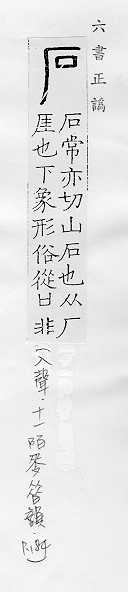 六書正譌
石
石常亦切山石也从厂
厓也下象形俗從口非
(入聲.十一陌麥昝韻)
P.184